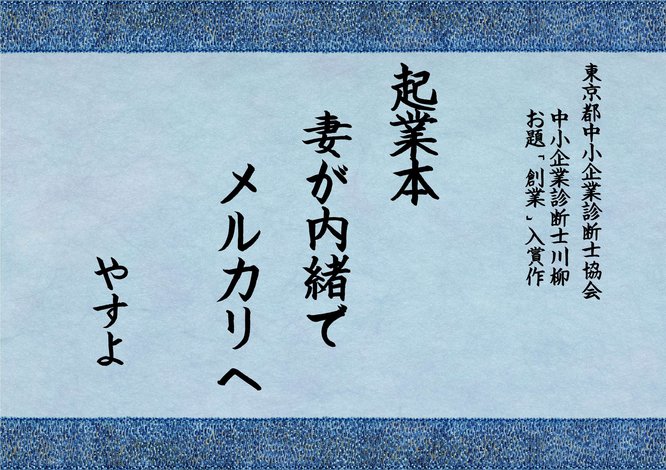 東京都中小企業診断士協会
中小企業診断士川柳
お題「創業」入賞作
起業本
妻が内緒で
メルカリへ
やすよ